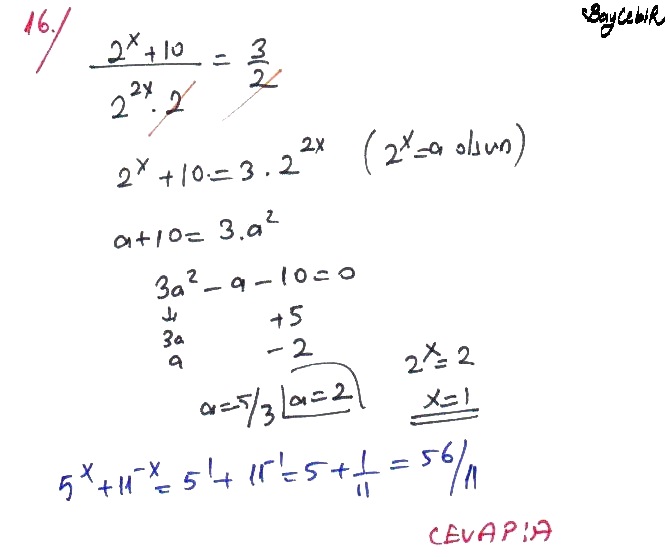 16.)
BayCebiR
(2^x + 10) / (2^2x . 2) = 3/2
2^x + 10 = 3 . 2^2x (2^x = a olsun)
a + 10 = 3.a²
3a² - a - 10 = 0
↓
3a +5
a -2
a = -5/3 a = 2 2^x = 2
x = 1
5^x + 11^-x = 5^1 + 11^-1 = 5 + 1/11 = 56/11
CEVAP:A